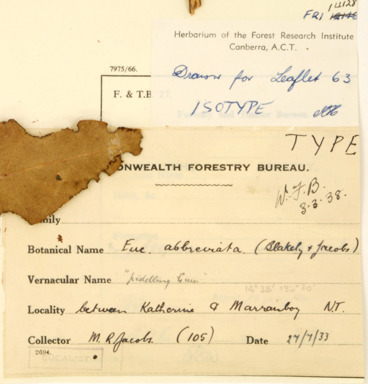 FRI
Herbarium of the Forest Research Institute
Canberra, A.C.T.
Drawn for Leaflet 63
ISOTYPE
7975/66.
F. & T.B.
TYPE
ONWEALTH FORESTRY BUREAU.
W.F.B.
3.3.38.
mily
Botanical Name Euc. abbreviata (Blakely & Jacobs)
Vernacular Name
Locality between Katherine & Marranboy N.T.
Collector M.R. Jacobs (105) Date 27/7/33
2094.